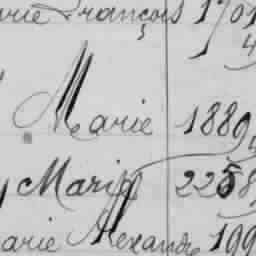 arie François 1701
4
Marie 1889
Maria 2258
arie Alexandre 199